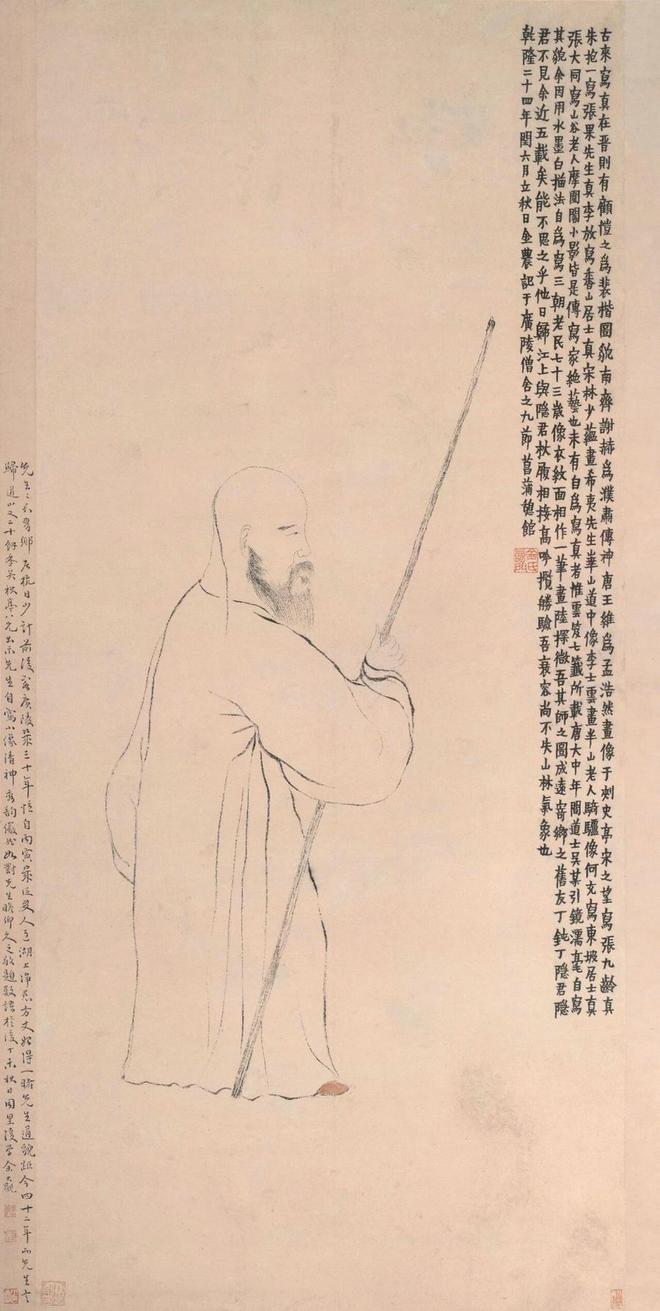 古來寫真在晉則有顧愷之爲裴楷圖貌南齊謝赫爲濮肅傳神唐王維爲孟浩然畫像于刺史亭宋之望寫張九齡真
朱抱一寫張果先生真李放寫香山居士真宋林少蘊畫希夷先生華山道中像李士雲畫半山老人騎驢像何充寫東坡居士真
張大同寫山谷老人摩圍閣小影皆是傳寫家絕藝也未有自爲寫真者惟雲笈七籤所載唐大中年間道士吳某引鏡濡毫自寫
其貌余因用水墨白描法自爲寫三朝老民七十三歲像衣紋面相作一筆畫陸探微吾其師之圖成遠寄鄉之舊友丁鈍丁隱君隱
君不見余近五載矣能不思之乎他日歸江上與隱君杖履相接高吟攬勝驗吾衰容尚不失山林氣象也
乾隆二十四年閏六月立秋日金農記于廣陵僧舍之九節菖蒲憩館
先生吾鄉居杭日少計前後客廣陵幾三十年憶自丙寅歲從友人至湖上淨慈方丈始得一睹先生道貌距今四十二年而先生
歸道山又二十餘年矣秋亭八兄出示先生自寫小像清神秀韵儼然如對先生瞻仰久之敬題數語於後丁未秋日同里後學余